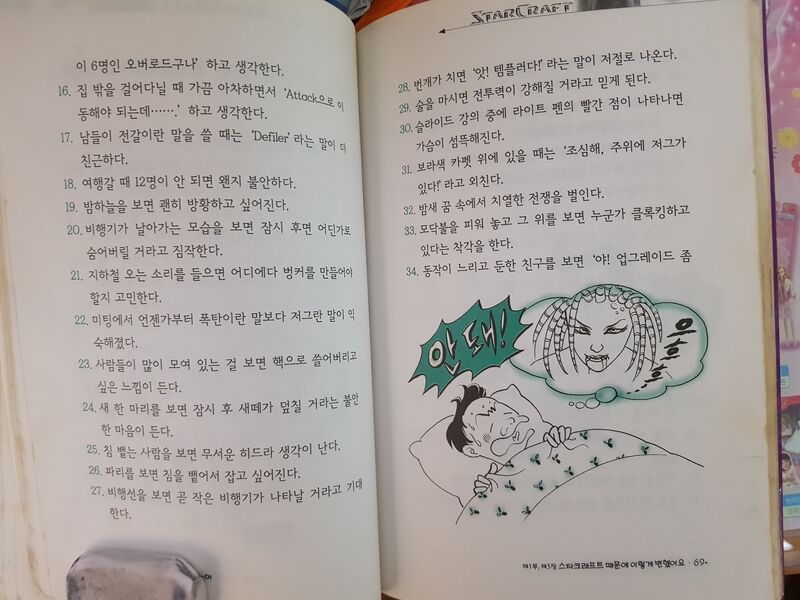 이 6명인 오버로드구나’ 하고 생각한다.
16. 집 밖을 걸어다닐 때 가끔 아차하면서 ‘Attack으로 이
동해야 되는데…….’ 하고 생각한다.
17. 남들이 전갈이란 말을 쓸 때는 ‘Defiler’라는 말이 더
친근하다.
18. 여행갈 때 12명이 안 되면 왠지 불안하다.
19. 밤하늘을 보면 괜히 방황하고 싶어진다.
20. 비행기가 날아가는 모습을 보면 잠시 후면 어딘가로
숨어버릴 거라고 짐작한다.
21. 지하철 오는 소리를 들으면 어디에다 벙커를 만들어야
할지 고민한다.
22. 미팅에서 언젠가부터 폭탄이란 말보다 저그란 말이 익
숙해졌다.
23. 사람들이 많이 모여 있는 걸 보면 핵으로 쓸어버리고
싶은 느낌이 든다.
24. 새 한 마리를 보면 잠시 후 새떼가 덮칠 거라는 불안
한 마음이 든다.
25. 침 뱉는 사람을 보면 무서운 히드라 생각이 난다.
26. 파리를 보면 침을 뱉어서 잡고 싶어진다.
27. 비행선을 보면 곧 작은 비행기가 나타날 거라고 기대
한다.
STARCRAFT
28. 번개가 치면 ‘앗! 템플러다!’ 라는 말이 저절로 나온다.
29. 술을 마시면 전투력이 강해질 거라고 믿게 된다.
30. 슬라이드 강의 중에 라이트 펜의 빨간 점이 나타나면
가슴이 섬뜩해진다.
31. 보라색 카펫 위에 있을 때는 ‘조심해, 주위에 저그가
있다!’ 라고 외친다.
32. 밤새 꿈 속에서 치열한 전쟁을 벌인다.
33. 모닥불을 피워 놓고 그 위를 보면 누군가 클록킹하고
있다는 착각을 한다.
34. 동작이 느리고 둔한 친구를 보면 ‘야! 업그레이드 좀
안 돼!
제1부, 제3장 스타크래프트 때문에 이렇게 변했어요 · 69